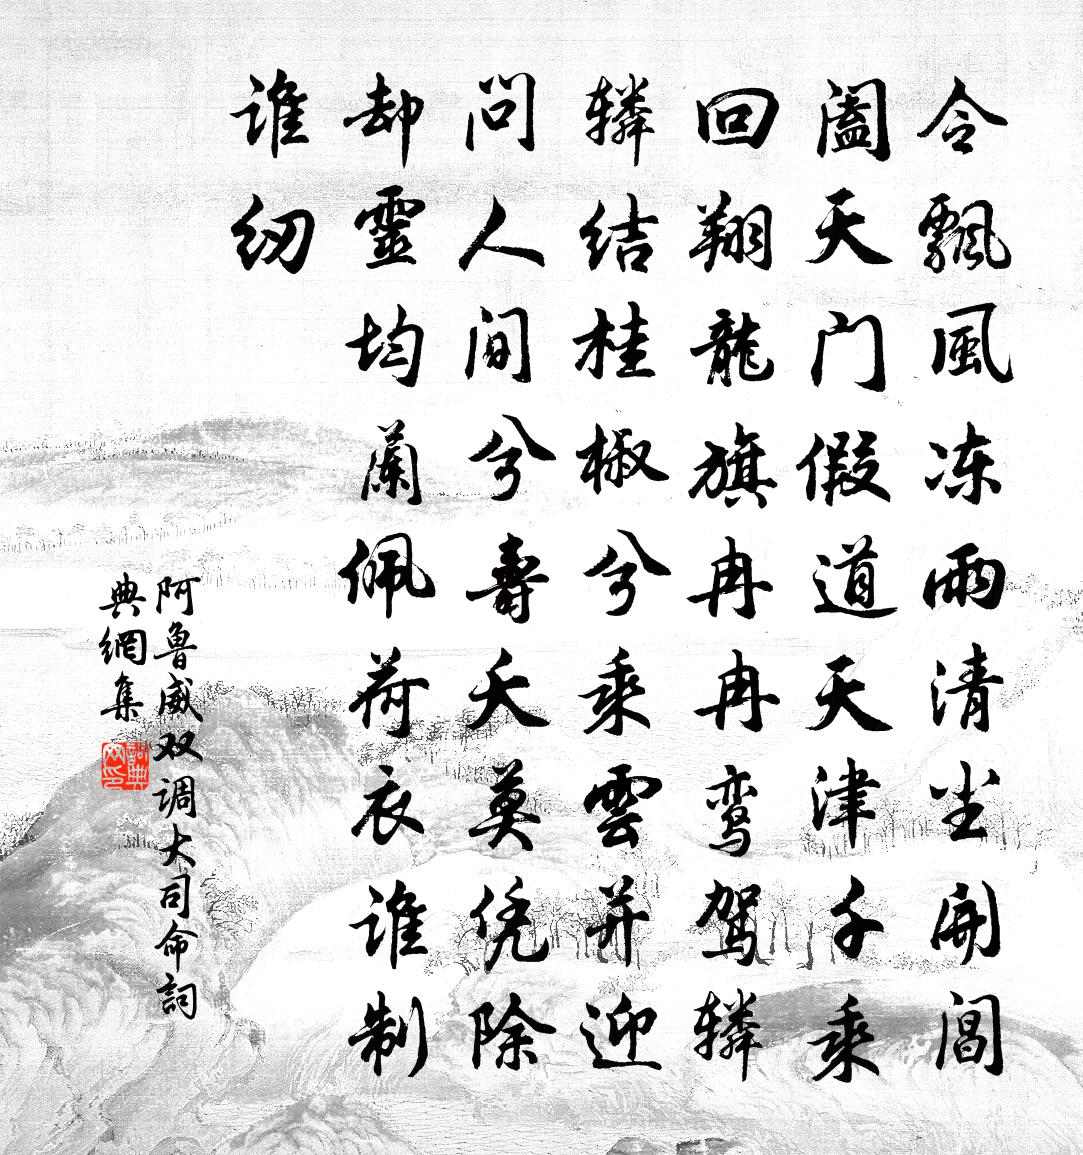 令飄風冻雨清尘開閶
闔天门假道天津千乘
回翔龍旗冉冉鸾駕辚
辚结桂椒兮乘雲并迎
问人间兮壽夭莫凭除
却靈均蘭佩荷衣谁制
谁纫
阿魯威双调大司命詞
典網集
詞典
网印